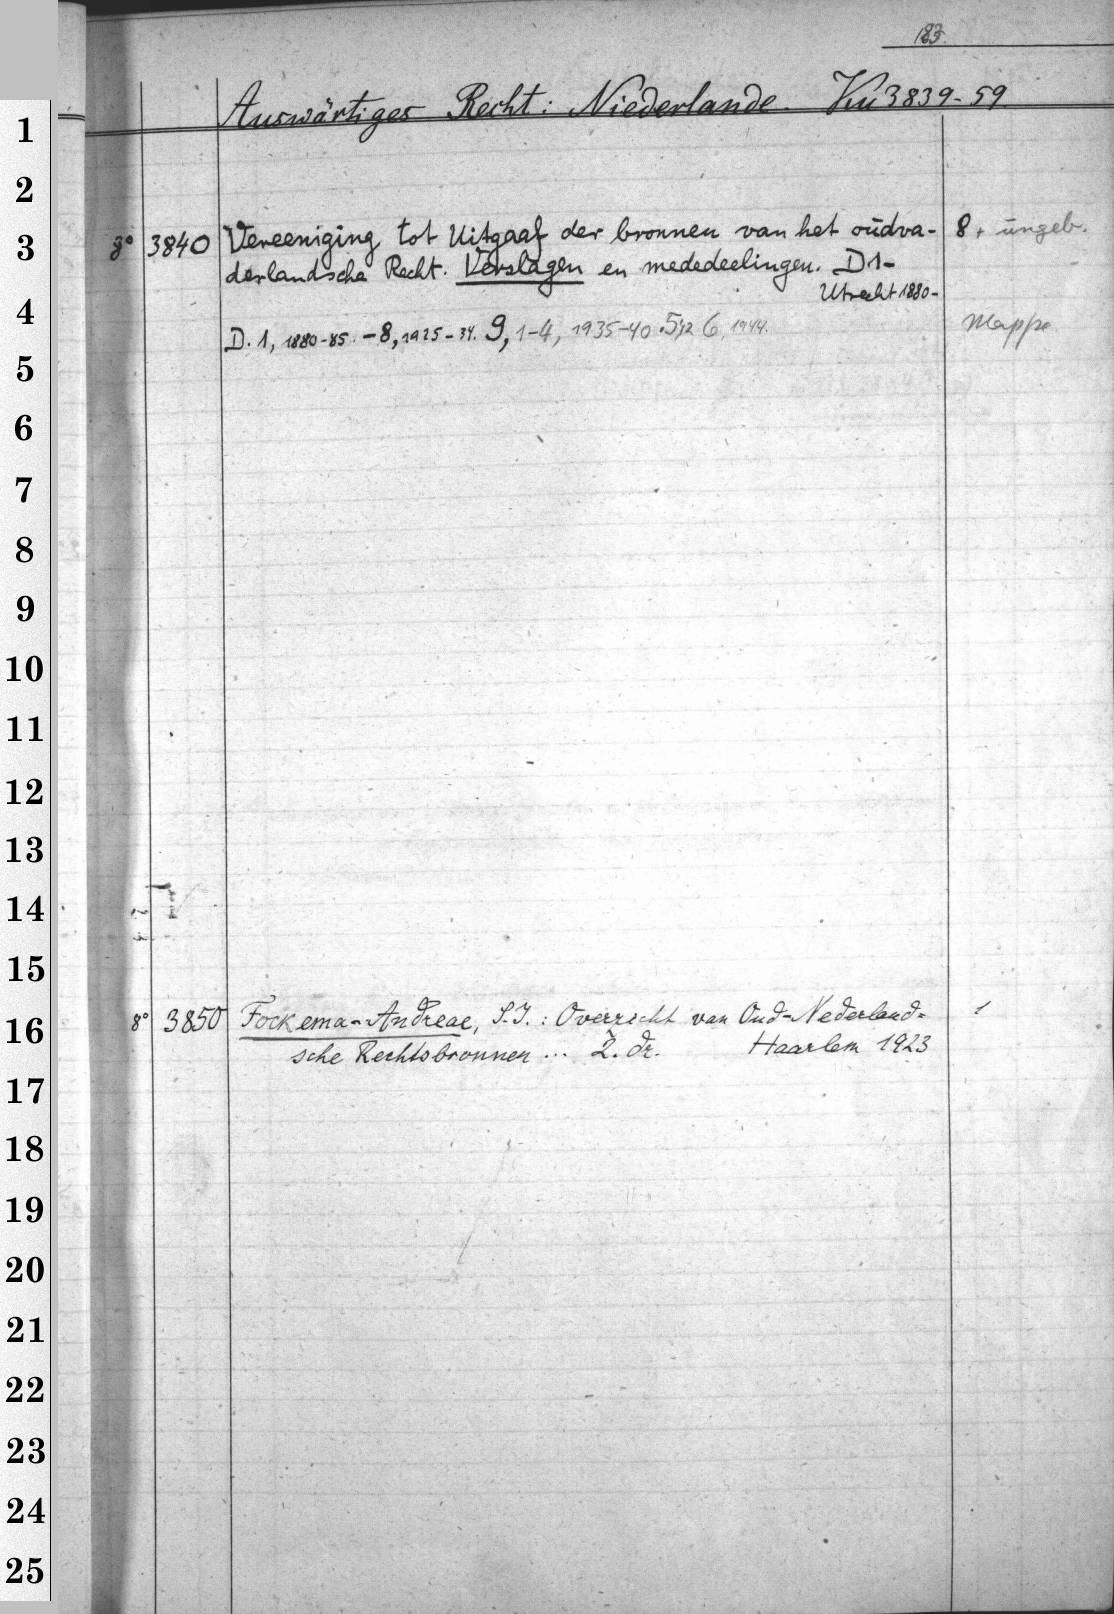 183.
Auswärtiges Recht: Niederlande. Ku 3839-59
1
2
3
8° 3840 Vereeniging tot Uitgaaf der bronnen van het oudva- 8 + ungeb.
derlandsche Recht. Verslagen en mededeelingen. D 1-
4
Utrecht 1880-
D. 1, 1880-85. - 8, 1925-34. 9, 1-4, 1935-40 5,42 6, 1944. Mappe
5
6
7
8
9
10
11
12
13
14
15
8° 3850 Fockema-Andreae, S.J.: Overzicht van Oud-Nederland- 1
16
sche Rechtsbronnen ... 2. dr. Haarlem 1923
17
18
19
20
21
22
23
24
25